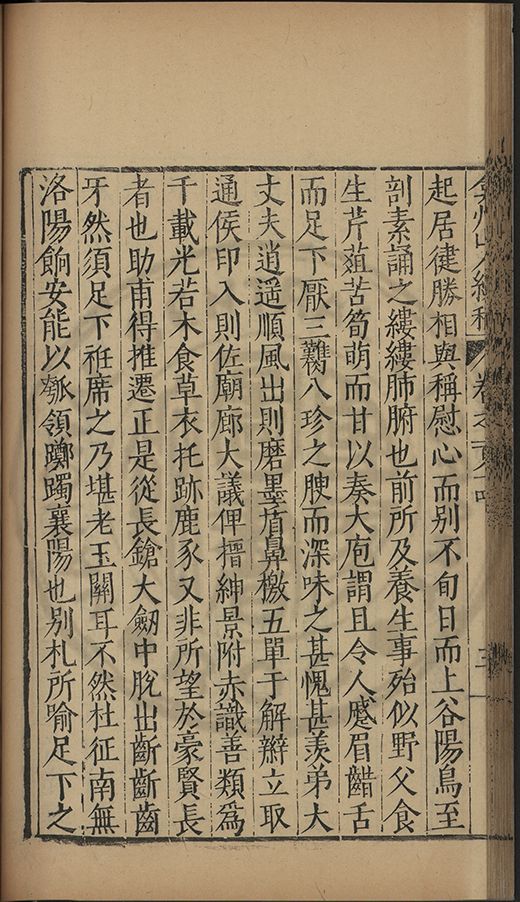 弇州山人續稿 卷之一百八十四 三
起居健勝相與稱慰心而别不旬日而上谷陽鳥至
剖素誦之縷縷肺腑也前所及養生事殆似野父食
生芹葅苦筍萌而甘以奏大庖謂且令人蹙眉齰舌
而足下厭三虋八珍之腴而深味之甚愧甚羡弟大
丈夫逍遥順風出則磨墨盾鼻檄五單于解辮立取
通侯印入則佐廟廊大議俾搢紳景附赤識善類爲
千載光若木食草衣托跡鹿豕又非所望於豪賢長
者也助甫得推遷正是從長鎗大劒中脫出齗齗齒
牙然須足下袵席之乃堪老玉關耳不然杜征南無
洛陽餉安能以瓠領躑躅襄陽也别札所喻足下之